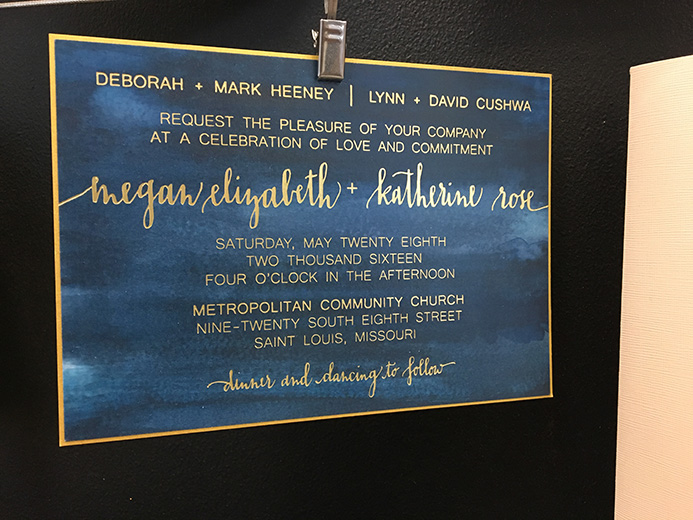 DEBORAH + MARK HEENEY | LYNN + DAVID CUSHWA
REQUEST THE PLEASURE OF YOUR COMPANY
AT A CELEBRATION OF LOVE AND COMMITMENT
megan elizabeth + katherine rose
SATURDAY, MAY TWENTY EIGHTH
TWO THOUSAND SIXTEEN
FOUR O'CLOCK IN THE AFTERNOON
METROPOLITAN COMMUNITY CHURCH
NINE-TWENTY SOUTH EIGHTH STREET
SAINT LOUIS, MISSOURI
dinner and dancing to follow